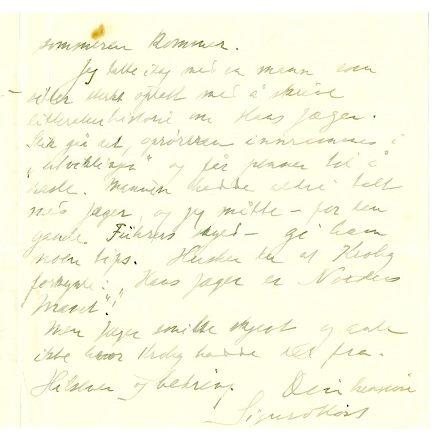 sommeren kommer.
Jeg talte idag med en mann som
er sterkt optatt med å skrive
litteraturhistorie om Hans Jæger.
Slik går det, oprøreren innrømmes i
"utviklingen" og får penner til å
rasle. Mannen hadde aldri talt
med Jæger, og jeg måtte – for den
gamle Førers skyld – gi ham
noen tips. Husker du at Krohg
forkynte: "Hans Jæger er Nordens
Men Jæger smilte skjevt og
ikke hvor Krohg hadde det fra.
Hilsen og bedring. Din hengivne
Sigurd